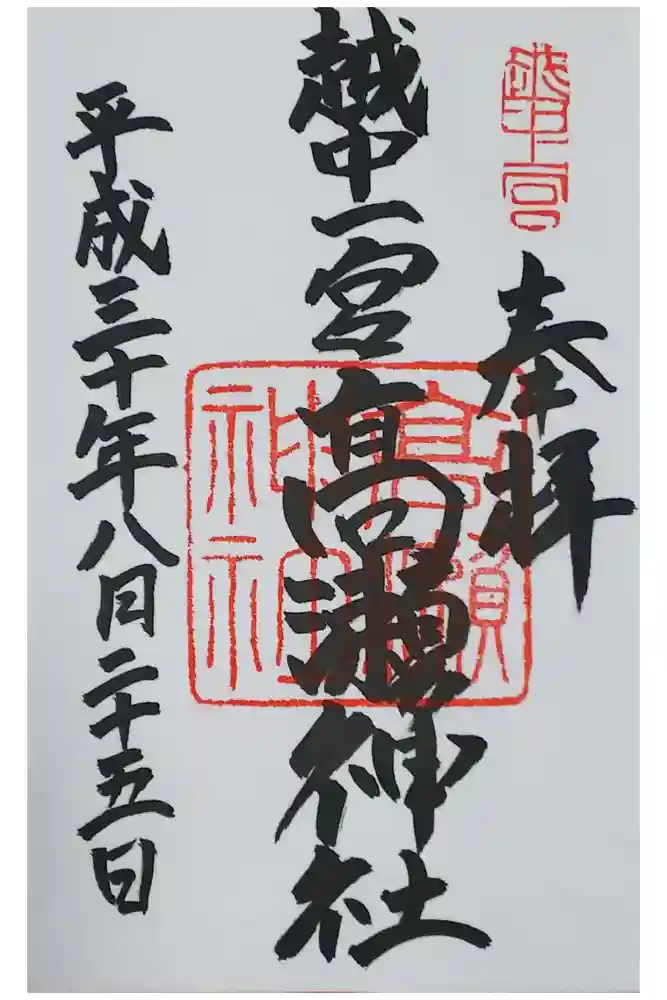 越中一宮
奉拝
越中一宮高瀬神社
高瀬
神社
平成三十年八月二十五日